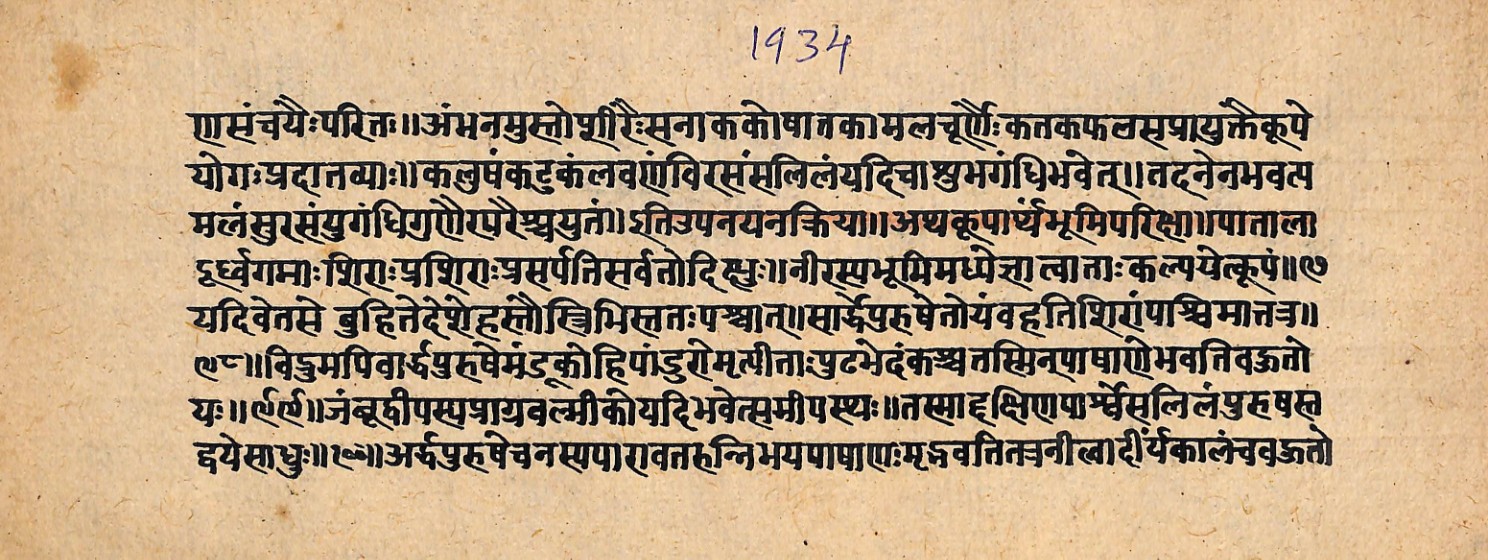 1934
णसंचयैःपरितः॥अंभनमुस्तोशीरैःसनाककोषातकामलचूर्णैःकतकफलसप्रायुक्तैकूपे
योगःप्रदातव्याः॥कलुषंकटुकंलवणंविरसंसलिलंयदिचाशुभगंधिभवेत्॥तदनेनभवत्प
मलंसुरसंयुगंधिगुणैरपरैश्चयुतं॥इतिउपनयनक्रिया॥अथकूपार्थ्यंभूमिपरिक्षा॥पाताला
दूर्ध्वगमाःशिराःप्रशिराःप्रसर्पतिसर्वतोदिक्षुः॥नीरस्पभूमिमध्येज्ञात्वाताःकल्पयेत्कूपं॥९७
यदिवेतसे बुहितेदेशेहस्तौस्त्रिभिस्ततःपश्चात्॥सार्द्धेपुरुषेतोयंवहतिशिरांपाश्चिमात्तत्र॥
९८॥विद्रुमपिवार्द्धपुरुषेमंडूकोहिपांडुरोमृत्पीताःपुटभेदंकश्चतस्मिन्पाषाणेभवतिवद्धतो
यः॥९९॥जंबूद्वीपस्पप्रायवल्मीकोयदिभवेत्समीपस्थः॥तस्माद्दक्षिणपार्श्वेसलिलंपुरुषस्त
द्वयेसाधुः॥१००॥अर्द्धपुरुषेचनस्पपारावतहन्तिभयपाषाणःमृद्भवतितत्रनीलादीर्यकालंचवद्धतो